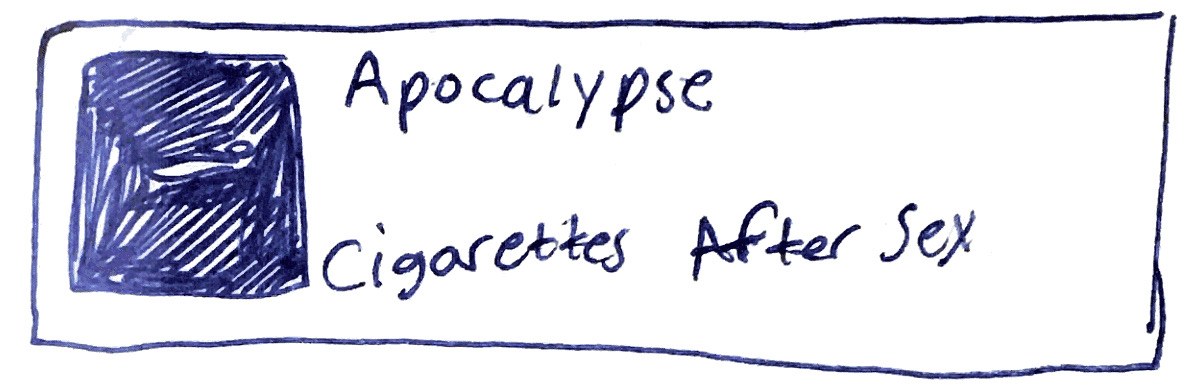 Apocalypse
Cigarettes After Sex